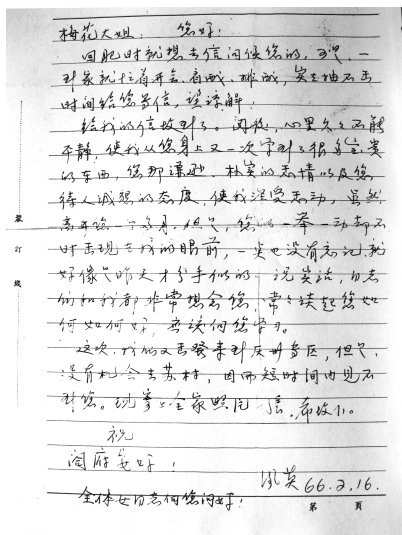 梅花大姐：您好！
回肥时就想去信问候您的，可是，一
到家就忙着开会、看戏、排戏，实在抽不出
时间给您写信，望谅解！
给我的信收到了。阅后，心里久久不能
平静，使我从您身上又一次学到了很多宝贵
的东西，您那谦逊、朴实的表情以及您
待人诚恳的态度，使我深受感动，虽然
离开您一个多月，但是，您的一举一动却不
时出现在我的眼前，一点也没有忘记，就
好像是昨天才分手似的。说实话，同志
们和我都非常想念您，常常谈起您如
何如何好，应该向您学习。
这次，我们又出发来到
区，但是，
没有机会去苏村，因而短时间内见不
到您。现寄上全家照片一张，希收下。
祝
阖府安好！
凤英 66.2.16.
全体女同志向您问好！
装
订
线
第 页